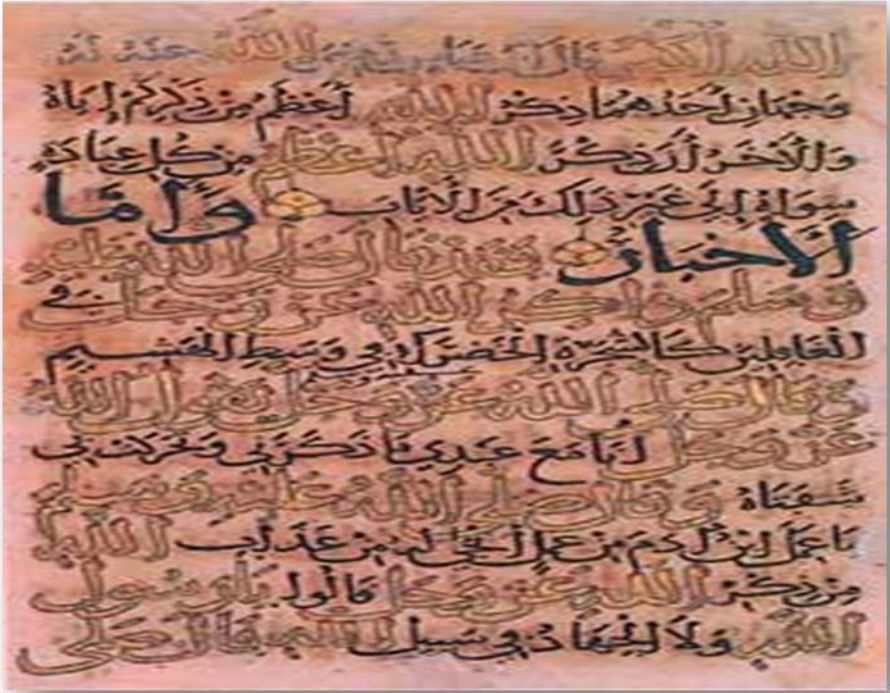 الله أكبر قال ابن عباس رضي الله عنه له
وجهان أحدهما ذكر الله أعظم من ذكركم إياه
والآخر أن ذكر الله أعظم من كل عبادة
سواه إلى غير ذلك من الآيات وأما
الأخبار فقد قال صلى الله عليه
وسلم ذاكر الله عز وجل في
الغافلين كالشجرة الخضراء في وسط الهشيم
وقال صلى الله عز وجل يقول الله
عز وجل أنا مع عبدي ما ذكرني وتحركت بي
شفتاه وقال صلى الله عليه وسلم
ما عمل ابن آدم من عمل أنجى له من عذاب الله
من ذكر الله عز وجل قالوا يا رسول
الله ولا الجهاد في سبيل الله قال صلى